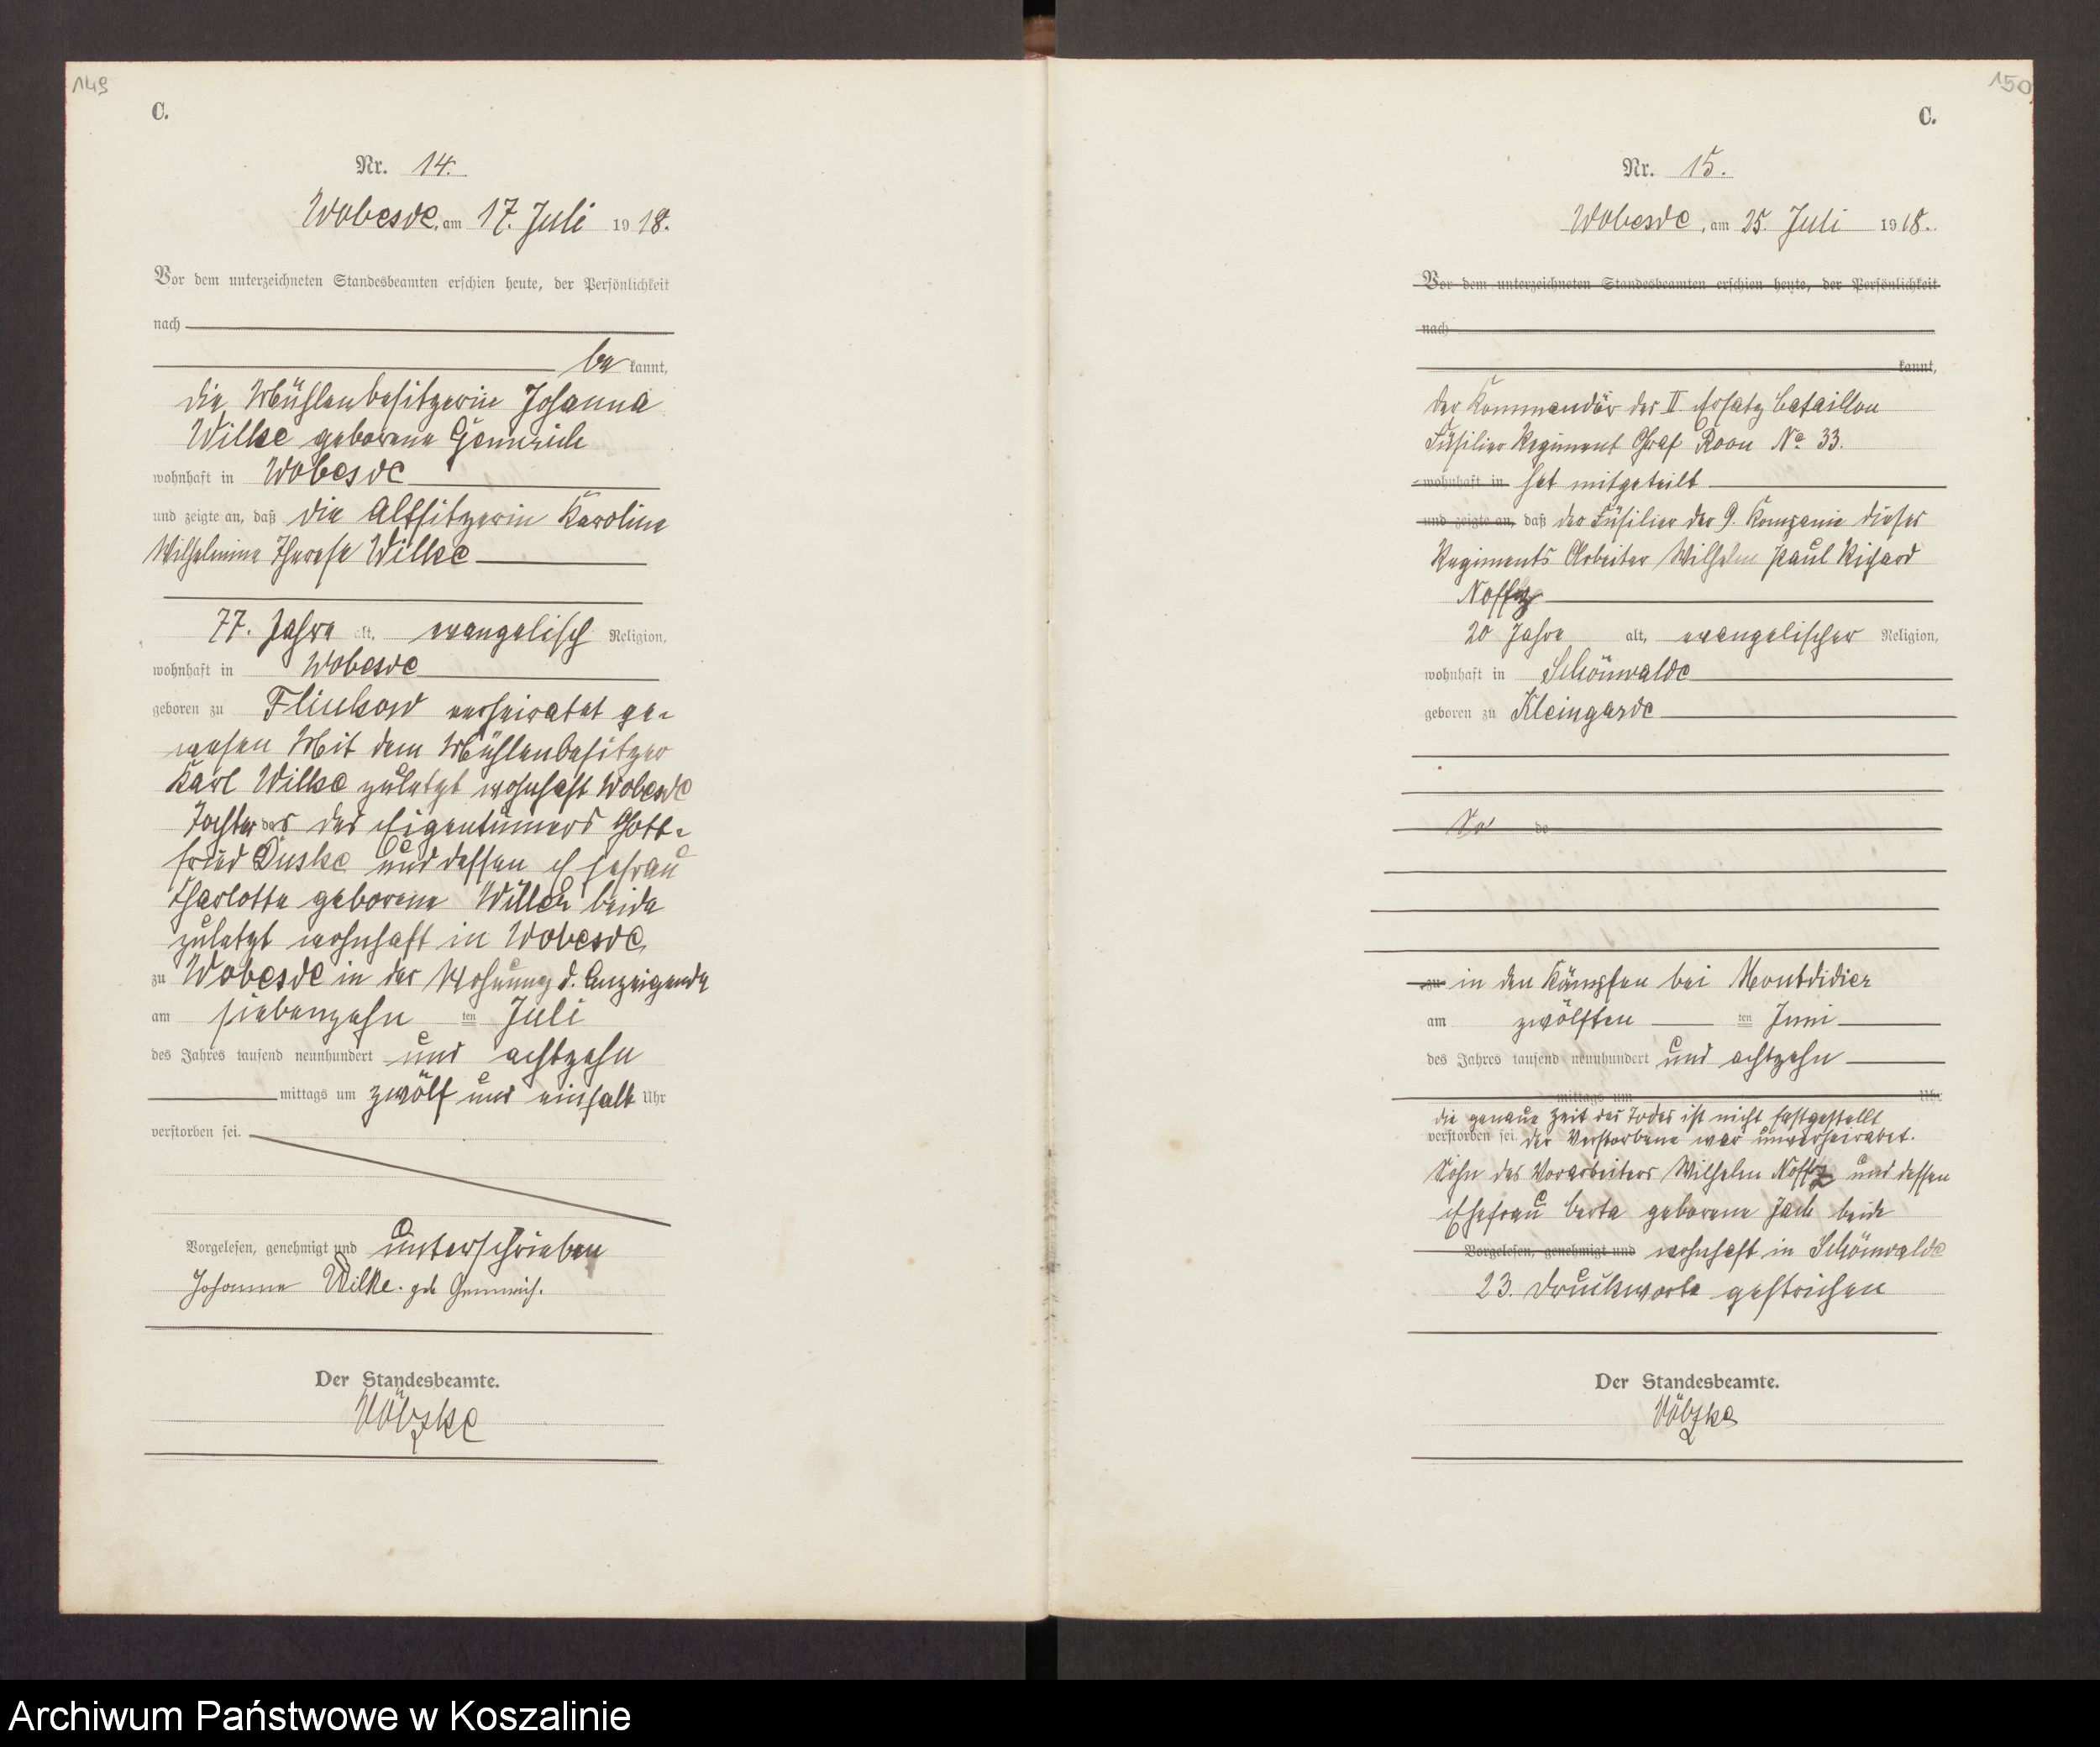 149
C.
Nr. 14.
Wobesde, am 17. Juli 1918.
Vor dem unterzeichneten Standesbeamten erschien heute, der Persönlichkeit
nach
be kannt,
die Mühlenbesitzerin Johanna
Wilke geborene Gemmrich
wohnhaft in Wobesde
und zeigte an, daß die Altsitzerin Karoline
Wilhelmine Therese Wilke
77. Jahre alt, evangelisch Religion,
wohnhaft in Wobesde
geboren zu Flinkow verheiratet ge-
wesen Mit dem Mühlenbesitzer
Karl Wilke zuletzt wohnhaft Wobesde
Tochter des des Eigentümers Gott-
fried und dessen Ehefrau
Charlotte geborene beide
zuletzt wohnhaft in Wobesde,
zu Wobesde in der Wohnung d. Anzeigende
am siebenzehn ten Juli
des Jahres tausend neunhundert und achtzehn
mittags um zwölf und einhalb Uhr
verstorben sei.
Vorgelesen, genehmigt und unterschrieben
Johanna Wilke. geb Gemmrich.
Der Standesbeamte.
150
C.
Nr. 15.
Wobesde, am 25. Juli 1918.
Vor dem unterzeichneten Standesbeamten erschien heute, der Persönlichkeit
nach
kannt,
der Kommandör des II Ersatz Bataillon
Füsilier Regiment Graf Roon No 33.
wohnhaft in hat mitgeteilt
und zeigte an, daß der Füsilier der 9. Kompanie dieses
Regiments Arbeiter Wilhelm Paul Richard
Noffz
20 Jahre alt, evangelischer Religion,
wohnhaft in Schönwalde
geboren zu Kleingarde
So de
zu in den Kämpfen bei Montdidier
am zwölften ten Juni
des Jahres tausend neunhundert und achtzehn
mittags um Uhr
die genaue Zeit des Todes ist nicht festgestellt
verstorben sei. der Verstorbene war unverheiratet.
Sohn des Vorarbeiters Wilhelm Noffz und dessen
Ehefrau Berta geborene Jach beide
Vorgelesen, genehmigt und wohnhaft in Schönwalde
23. Druckworte gestrichen
Der Standesbeamte.
Archiwum Państwowe w Koszalinie